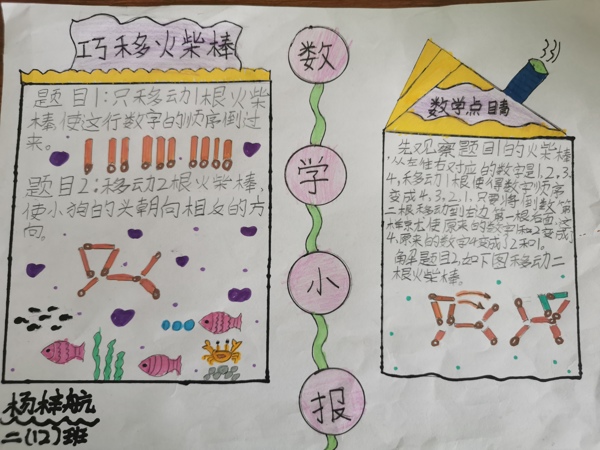 巧移火柴棒
题目1:只移动1根火柴
棒,使这行数字的顺序倒过
来。
题目2:移动2根火柴棒,
使小狗的头朝向相反的方
向。
杨梓航
二(12)班
数
学
小
报
数学点睛
先观察题目1的火柴棒,
从左往右对应的数字是1,2,3,
4,移动1根使得数字顺序
变成4,3,2,1,只要将倒数第
二根移动到右边第一根右面,这
样就使原来的数字1和2变成了
4,原来的数字4变成了2和1。
解题目2,如下图移动二
根火柴棒。